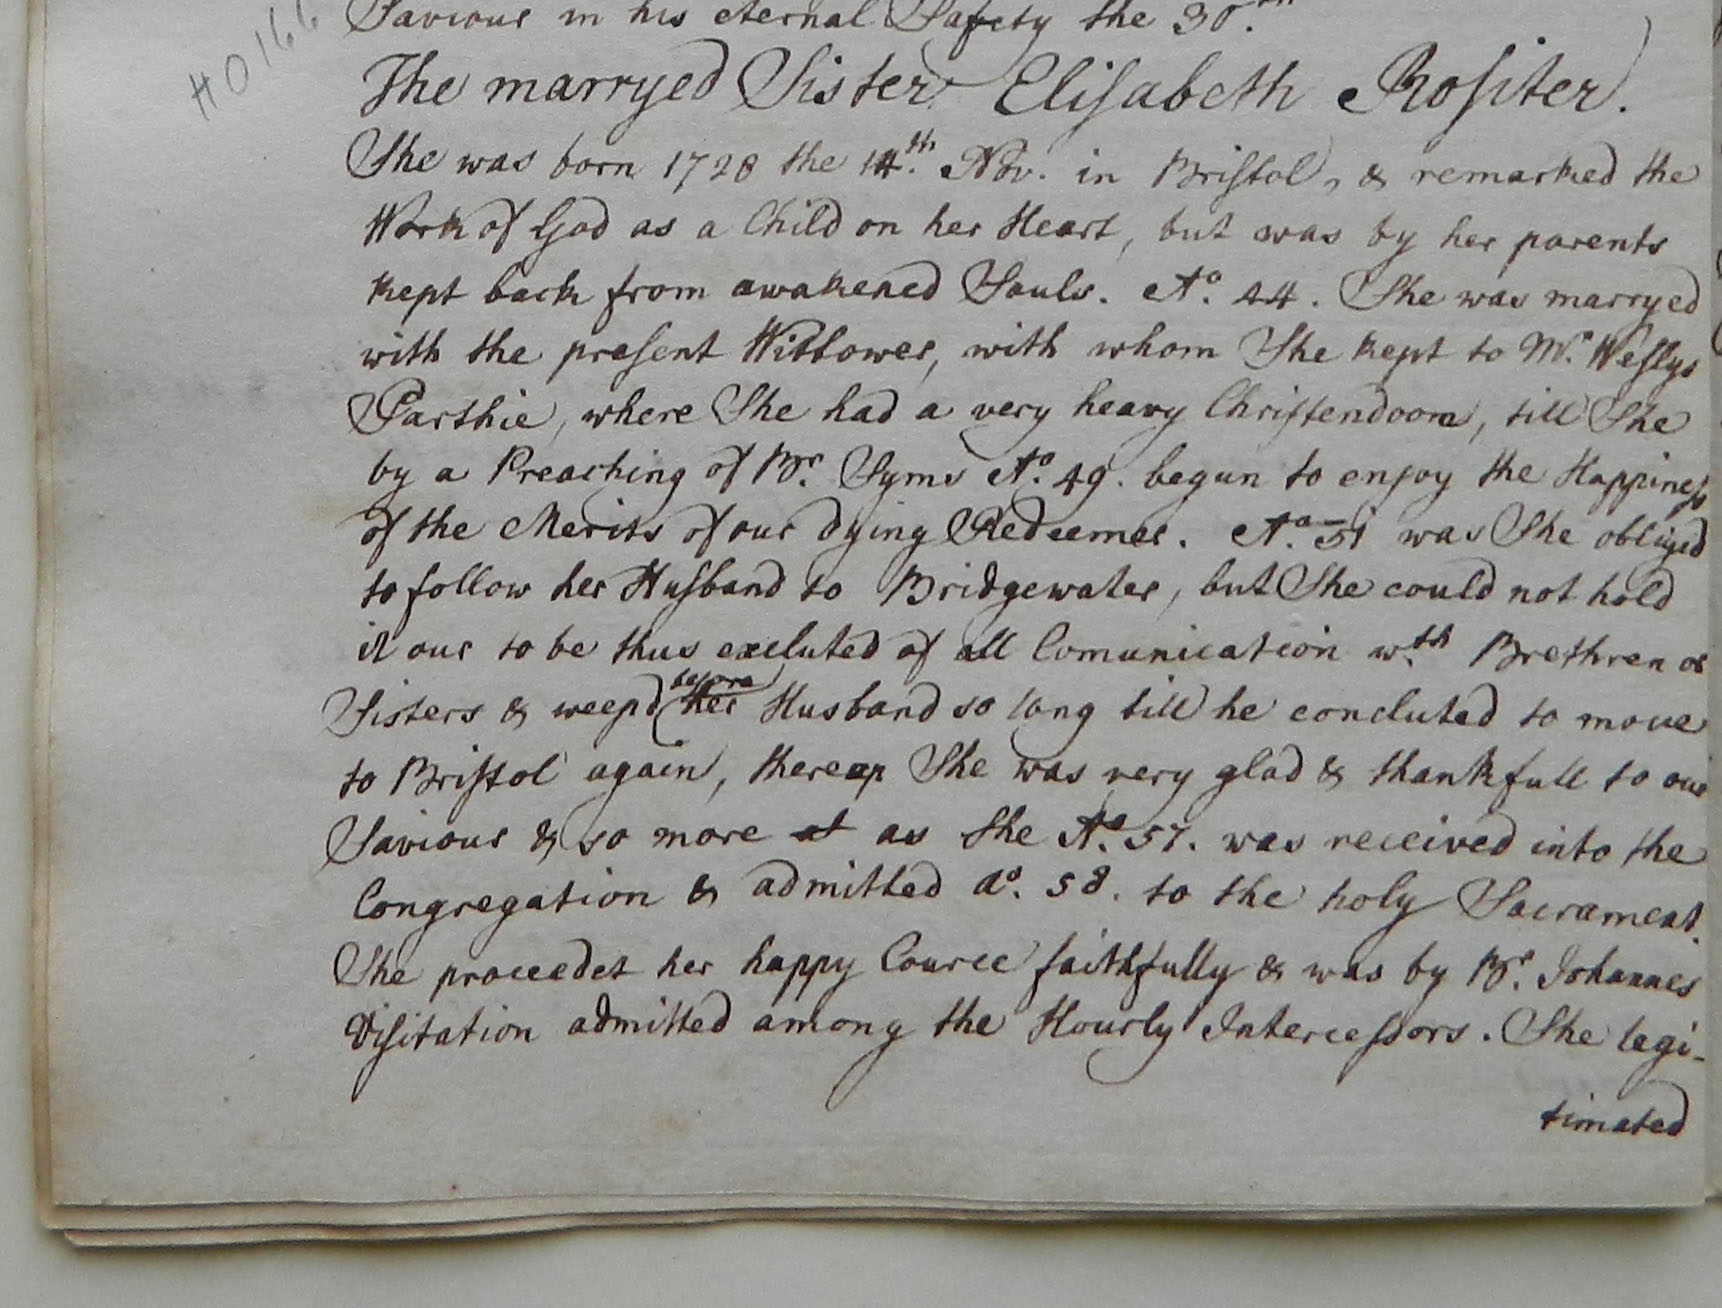 Saviour in his eternal Safety the 30.th
H0166
The marryed Sister Elisabeth Rositer.
She was born 1728 the 14.th Nov. in Bristol, & remarked the
Work of God as a Child on her Heart, but was by her parents
kept back from awakened Souls. Ao. 44. She was marryed
with the present Wittower, with whom She kept to Mr. Weslys
Parthie, where She had a very heavy Christendoom, till She
by a Preaching of Br. Syms Ao. 49. begun to enjoy the Happiness
of the Merits of our dying Redeemer. Ao. 51 was She obliged
to follow her Husband to Bridgewater, but She could not hold
it our to be thus excluted of all Comunication w.th Brethren or
Sisters & weepd before her Husband so long till he concluted to move
to Bristol again, thereup She was very glad & thankfull to our
Saviour & so more at as She Ao. 57. was received into the
Congregation & admitted ao. 58. to the holy Sacrament.
She proceedet her happy Cource faithfully & was by Br. Johannes
Visitation admitted among the Hourly Intercessors. She legi-
timated